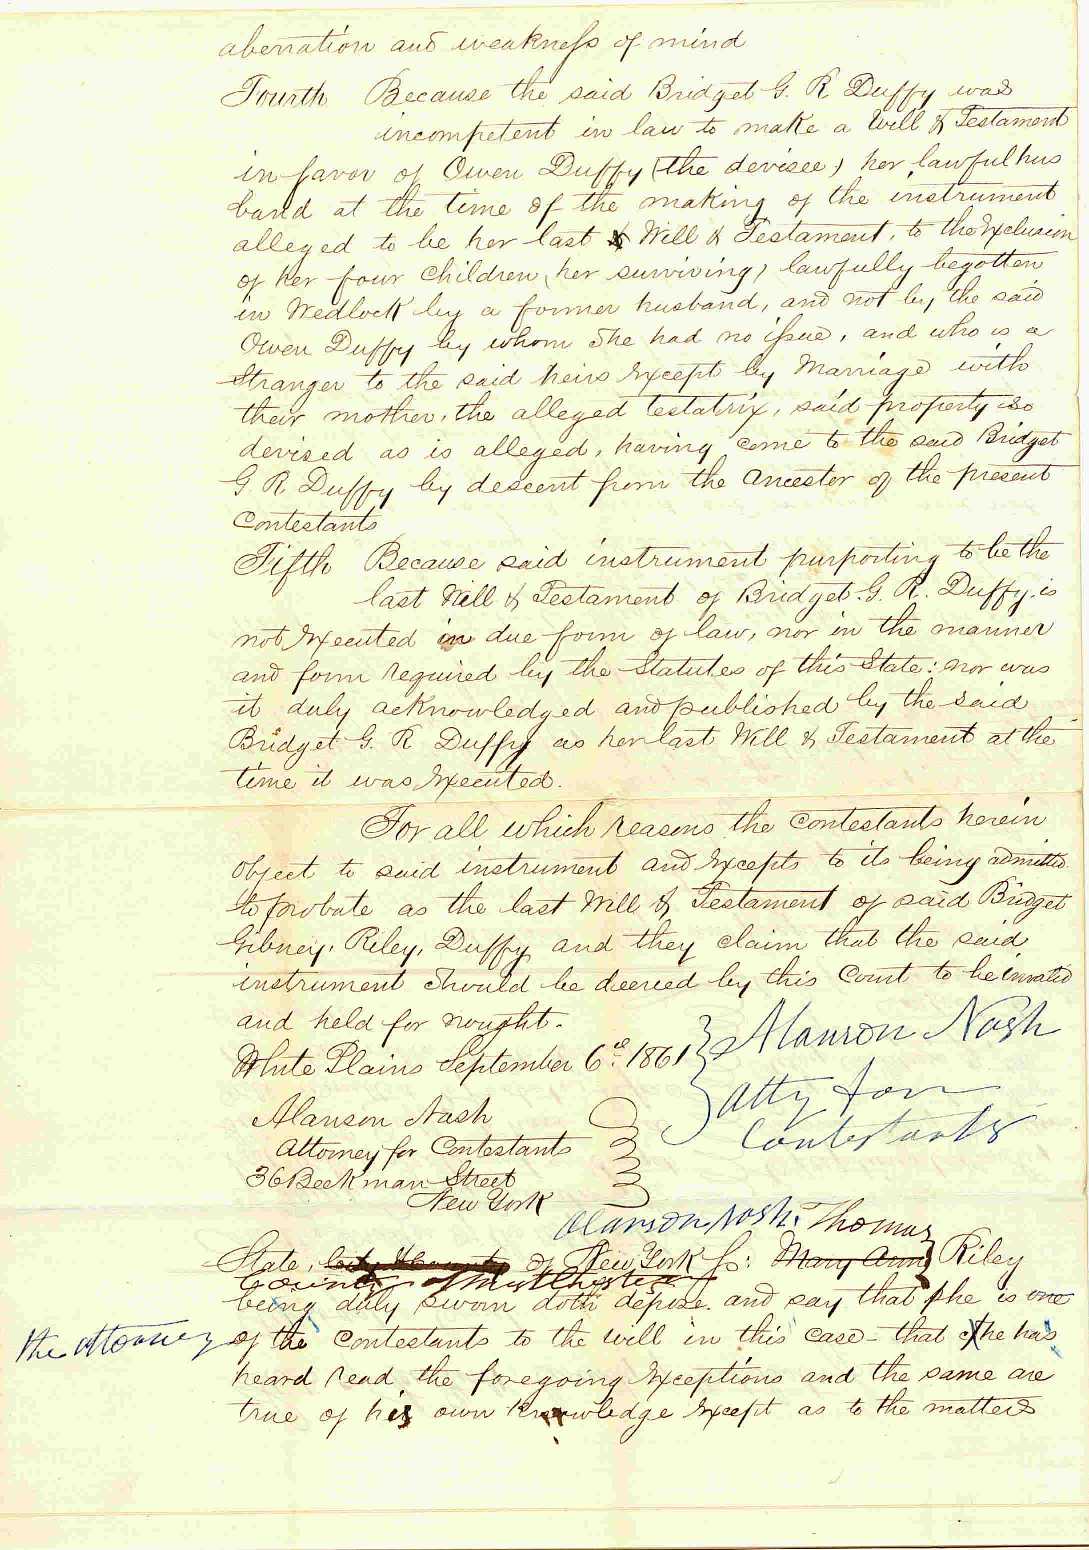 aberration and weakness of mind
Fourth Because the said Bridget G. R Duffy was
incompetent in law to make a Will & Testament
in favor of Owen Duffy (the devisee) her lawful hus
band at the time of the making of the instrument
alleged to be her last & Will & Testament, to the Exclusion
of her four Children (her surviving) lawfully begotten
in Wedlock by a former husband, and not by the said
Owen Duffy by whom She had no issue, and who is a
Stranger to the said heirs Except by Marriage with
their mother, the alleged testatrix, said property so
devised as is alleged, having come to the said Bridget
G R Duffy by descent from the Ancestor of the present
Contestants
Fifth Because said instrument purporting to be the
last Will & Testament of Bridget. G. R. Duffy is
not Executed in due form of law, nor in the manner
and form required by the Statutes of this State: nor was
it duly acknowledged and published by the said
Bridget G. R Duffy as her last Will & Testament at the
time it was Executed.
For all which reasons the Contestants herein
object to said instrument and Excepts to its being admitted
to probate as the last Will & Testament of said Bridget
Gibney, Riley, Duffy and they claim that the said
instrument Should be decreed by this Court to be invalid
and held for nought.
White Plains September 6th 1861
Alanson Nash
Atty for
Contestants
Alanson Nash
Attorney for Contestants
36 Beekman Street
New York
Alanson Nash. Thomas
State, City & County of New York ss: Mary Ann Riley
County of Westchester
being duly sworn doth depose and say that she is one
the attorney of the Contestants to the will in this case - that he has
heard read the foregoing Exceptions and the same are
true of his own Knowledge Except as to the matters